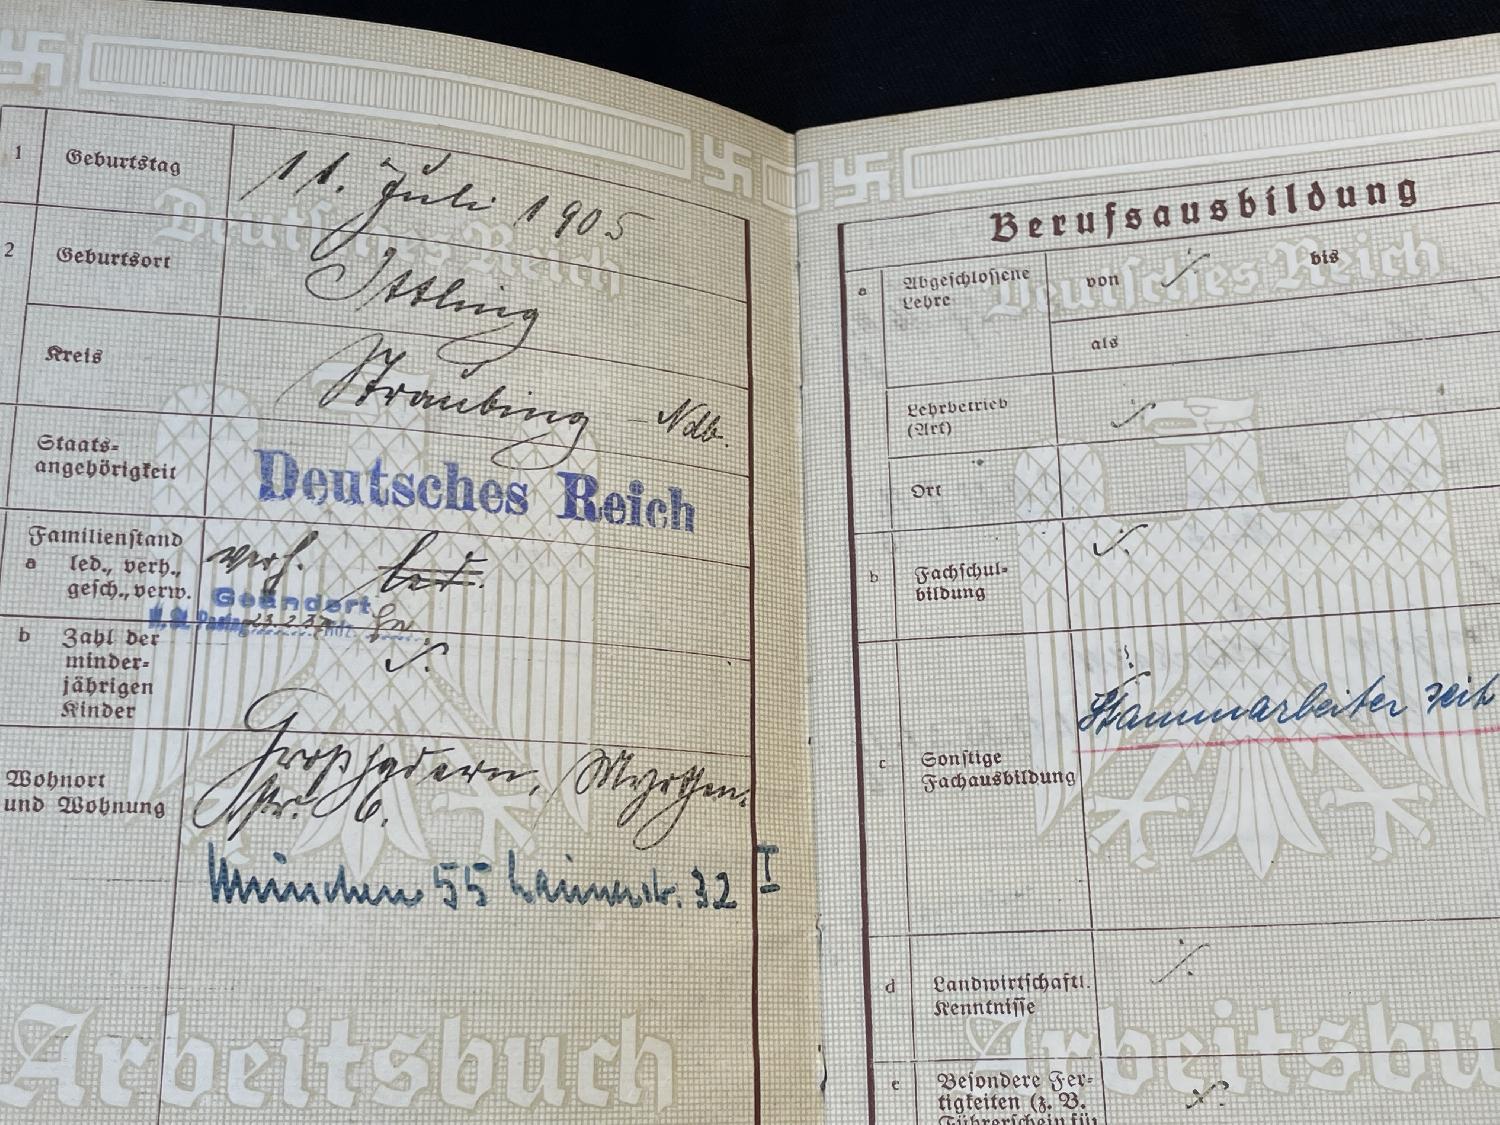 1 Geburtstag 11. Juli 1905
2 Geburtsort Ittling
Kreis Straubing Ndb.
Staats-
angehörigkeit Deutsches Reich
Familienstand
a led., verh., verh. led.
gesch., verw.
Geändert
23.2.37
b Zahl der
minder-
jährigen
Kinder
Wohnort Großhadern,
und Wohnung str. 6.
München 55 32 I
Deutsches Reich
Arbeitsbuch
Berufsausbildung
a Abgeschlossene
Lehre
von bis
als
Lehrbetrieb
(Art)
Ort
b Fachschul-
bildung
Stammarbeiter seit
c Sonstige
Fachausbildung
d Landwirtschaftl.
Kenntnisse
e Besondere Fer-
tigkeiten (z. B.
Führerschein für
Deutsches Reich
Arbeitsbu